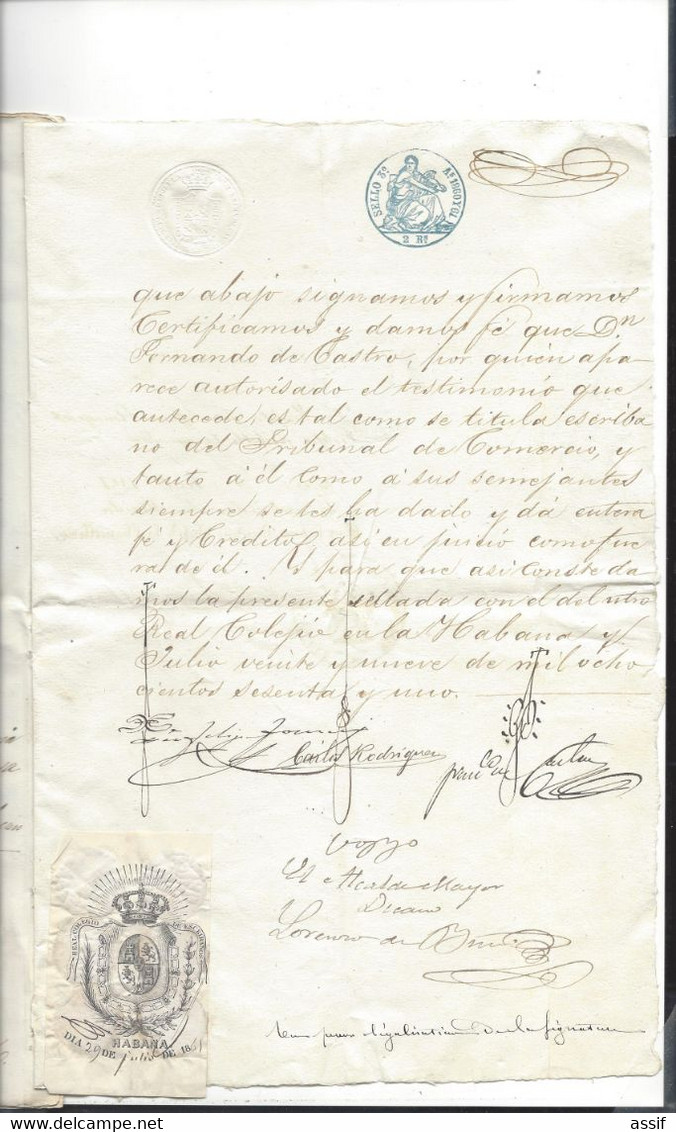 SELLO 3º Aº 1860 Y 61
2 Rs
que abajo signamos y firmamos
Certificamos y damos fé que Dn
Fernando de Castro, por quién apa-
rece autorisado el testimonio que
antecede, es tal como se titula escriba
no del Tribunal de Comercio, y
tanto á él como á sus semejantes
siempre se les ha dado y dá entera
fé y Credito así en juicio como fue
ra de él. Y para que asi conste da
mos la presente sellada con el del ntro
Real Colegio en la Habana y
Julio veinte y nueve de mil ocho
cientos sesenta y uno.
Carlos Rodriguez
El Alcalde Mayor
Decano
Lorenzo de
Vu pour légalisation de la signature
REAL COLEGIO DE ESCRIBANOS
HABANA.
DIA 29 DE Julio DE 1861
delcampe.net
assif